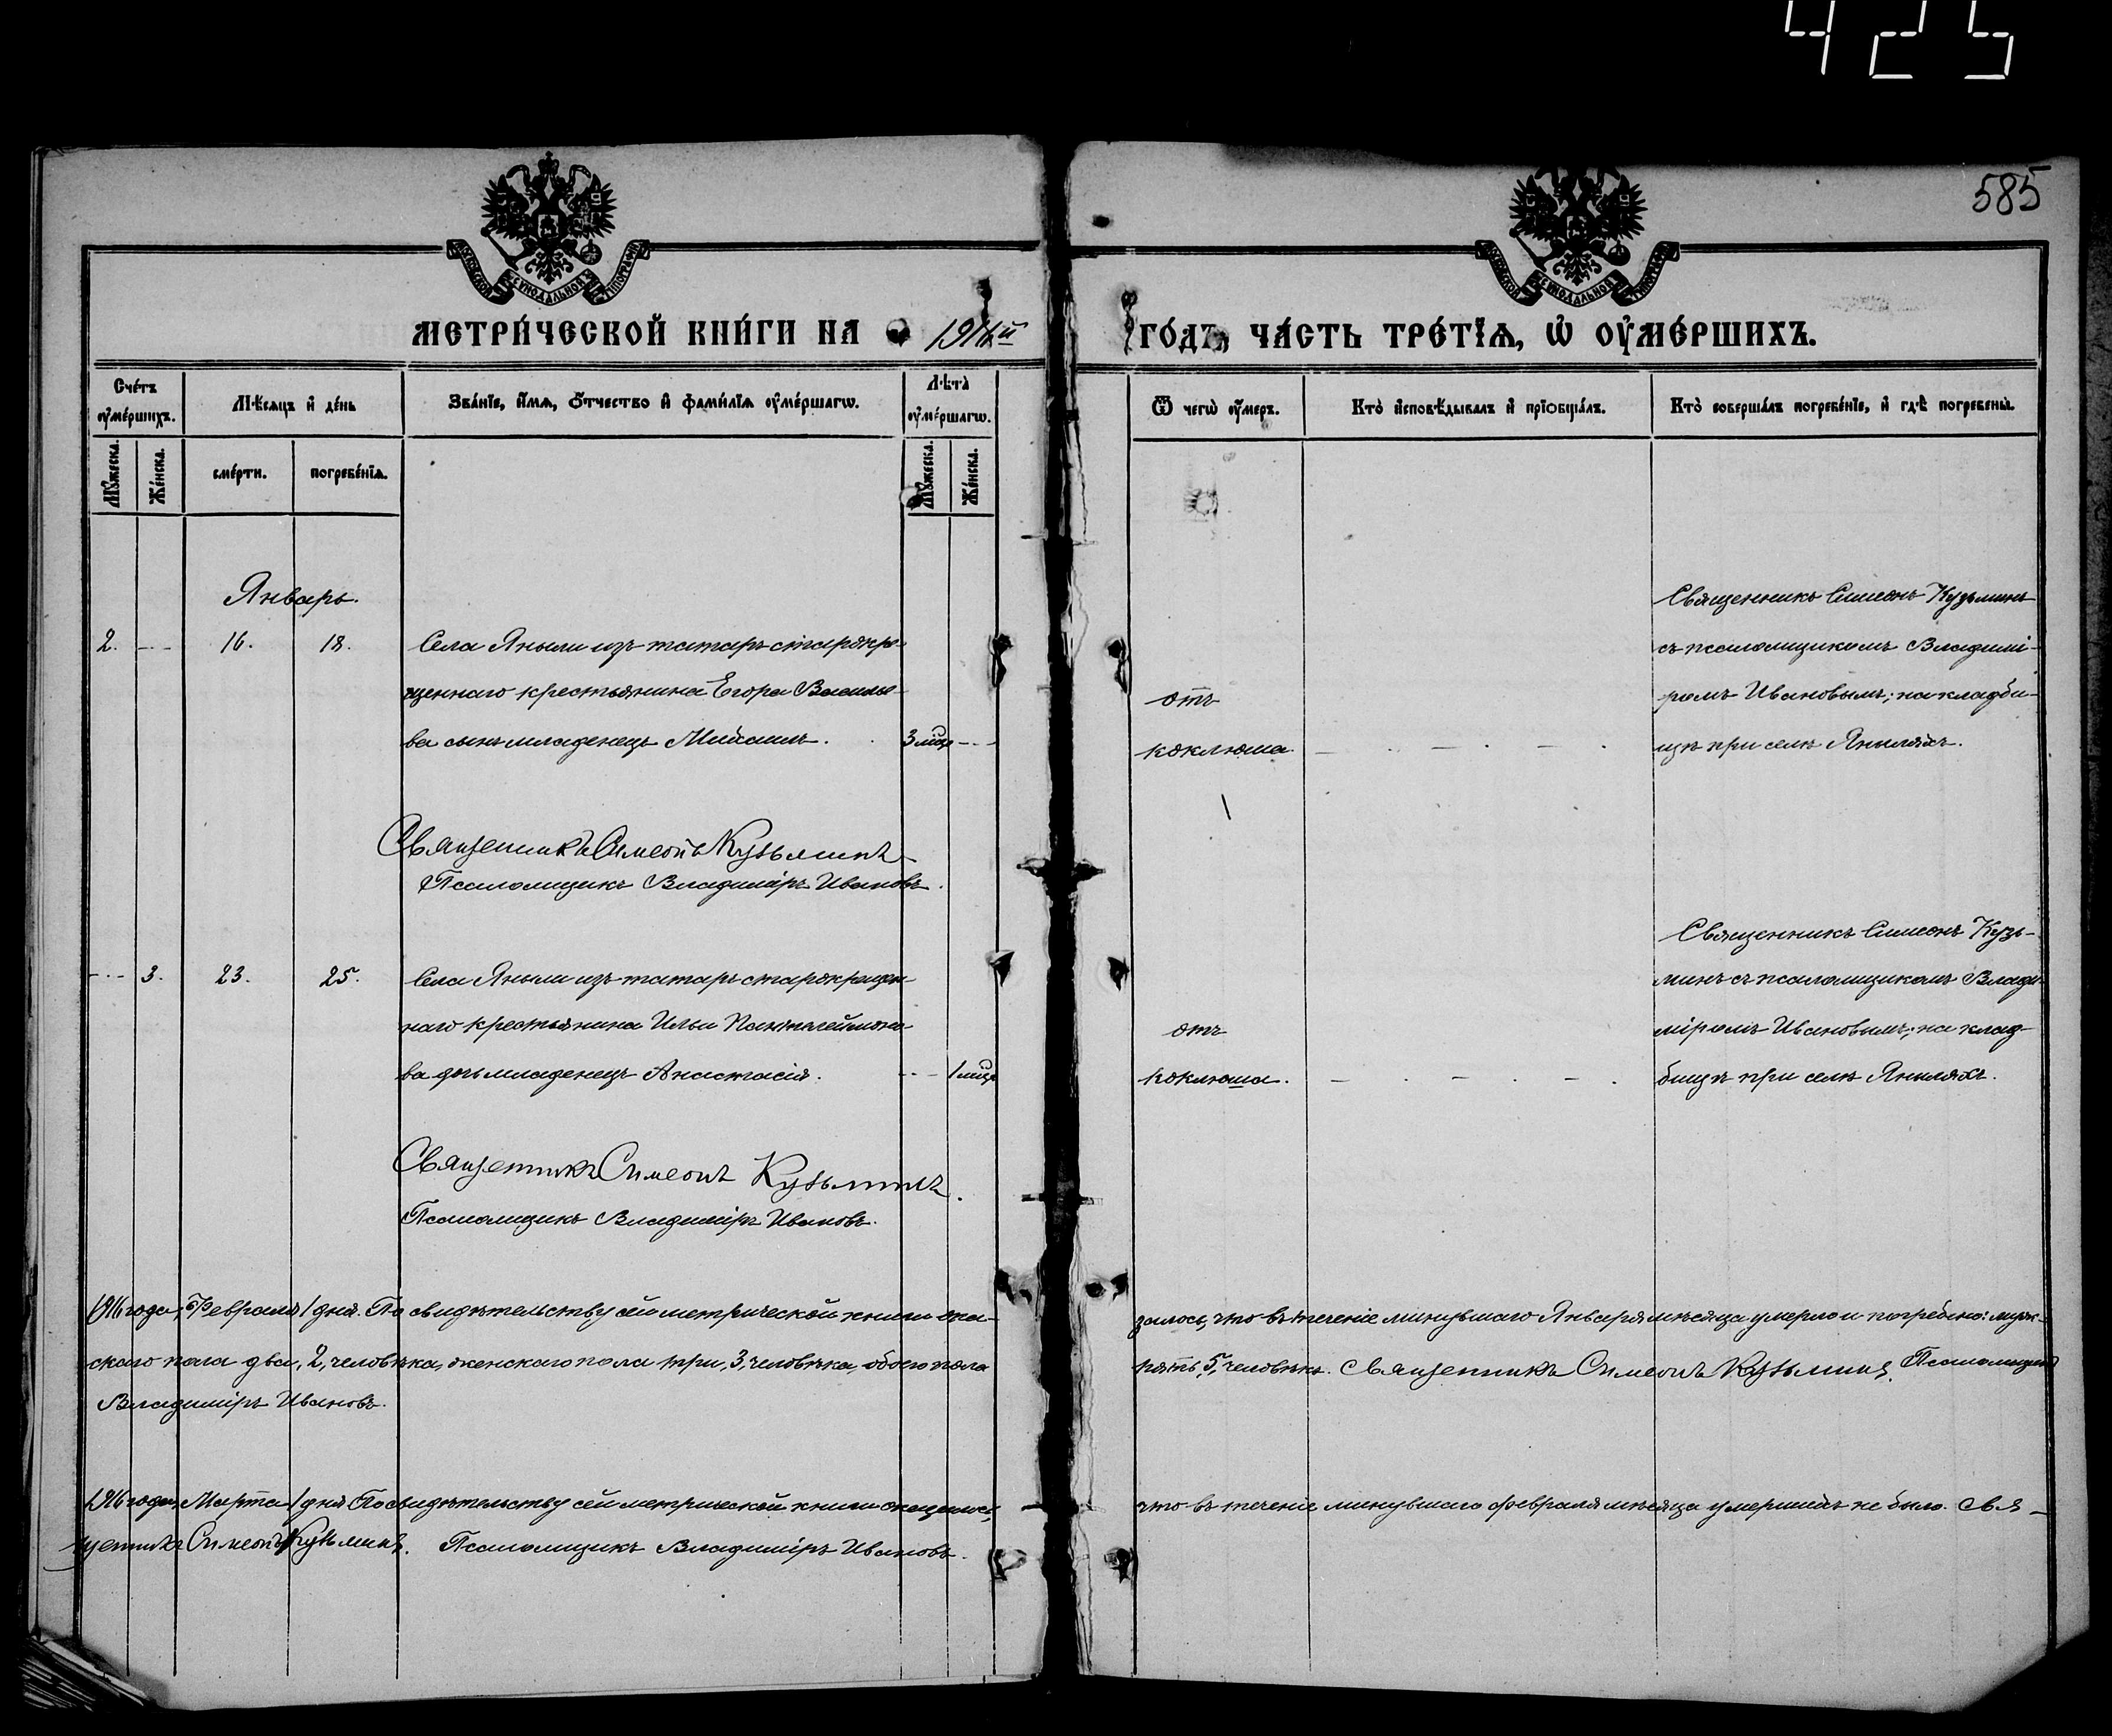 425
585
МОСКОВСКОЙ СѴНОДАЛЬНОЙ ТИПОГРАФІИ
МОСКОВСКОЙ СѴНОДАЛЬНОЙ ТИПОГРАФІИ
МЕТРИ́ЧЕСКОЙ КНИ́ГИ НА 1916й
ГО́ДЪ, ЧА́СТЬ ТРЕ́ТЇѦ, Ѡ҆ ОУ҆МЕ́РШИХЪ.
Сче́тъ оу҆ме́ршихъ.
Мѣ́сяцъ и҆ де́нь
Зва́нїе, и҆́мѧ, ѻ҆́тчество и҆ фами́лїѧ оу҆ме́ршагѡ.
Лѣ́та̀ оу҆ме́ршагѡ.
Ѿ чегѡ̀ оу҆́меръ.
Кто̀ и҆сповѣ́дывалъ и҆ прїѡбща́лъ.
Кто̀ соверша́лъ погребе́нїе, и҆ гдѣ̀ погребены̀.
Мꙋ́жеска.
Же́нска.
сме́рти.
погребе́нїѧ.
Мꙋ́жеска.
Же́нска.
Январь.
2. - - - 16. 18. Села Яныли изъ татаръ старокре-
щеннаго крестьянина Егора Василье-
ва сынъ младенецъ Михаилъ. 3 мцъ - - -
отъ
коклюша.
Священникъ Симеонъ Кузьминъ
съ псаломщикомъ Владимі-
ромъ Ивановымъ; на кладби-
щѣ при селѣ Яныляхъ.
Священникъ Симеонъ Кузьминъ
Псаломщикъ Владиміръ Ивановъ.
- - - 3. 23. 25. Села Яныли изъ татаръ старокрещен-
наго крестьянина Ильи Пантелеймоно-
ва дочь младенецъ Анастасія. - - - 1 мцъ
отъ
коклюша.
Священникъ Симеонъ Кузь-
минъ съ псаломщикомъ Влади-
міромъ Ивановымъ; на клад-
бищѣ при селѣ Яныляхъ.
Священникъ Симеонъ Кузьминъ.
Псаломщикъ Владиміръ Ивановъ.
1916 года, Февраля 1 дня. По свидѣтельству сей метрической книги ока-
залось, что въ теченіе минувшаго Января мѣсяца умерло и погребено: муж-
скаго пола два, 2, человѣка, женскаго пола три, 3, человѣка, обоего пола
пять, 5, человѣкъ. Священникъ Симеонъ Кузьминъ. Псаломщикъ
Владиміръ Ивановъ.
1916 года, Марта 1 дня. По свидѣтельству сей метрической книги оказалось,
что въ теченіе минувшаго февраля мѣсяца умершихъ не было. Свя-
щенникъ Симеонъ Кузьминъ. Псаломщикъ Владиміръ Ивановъ.